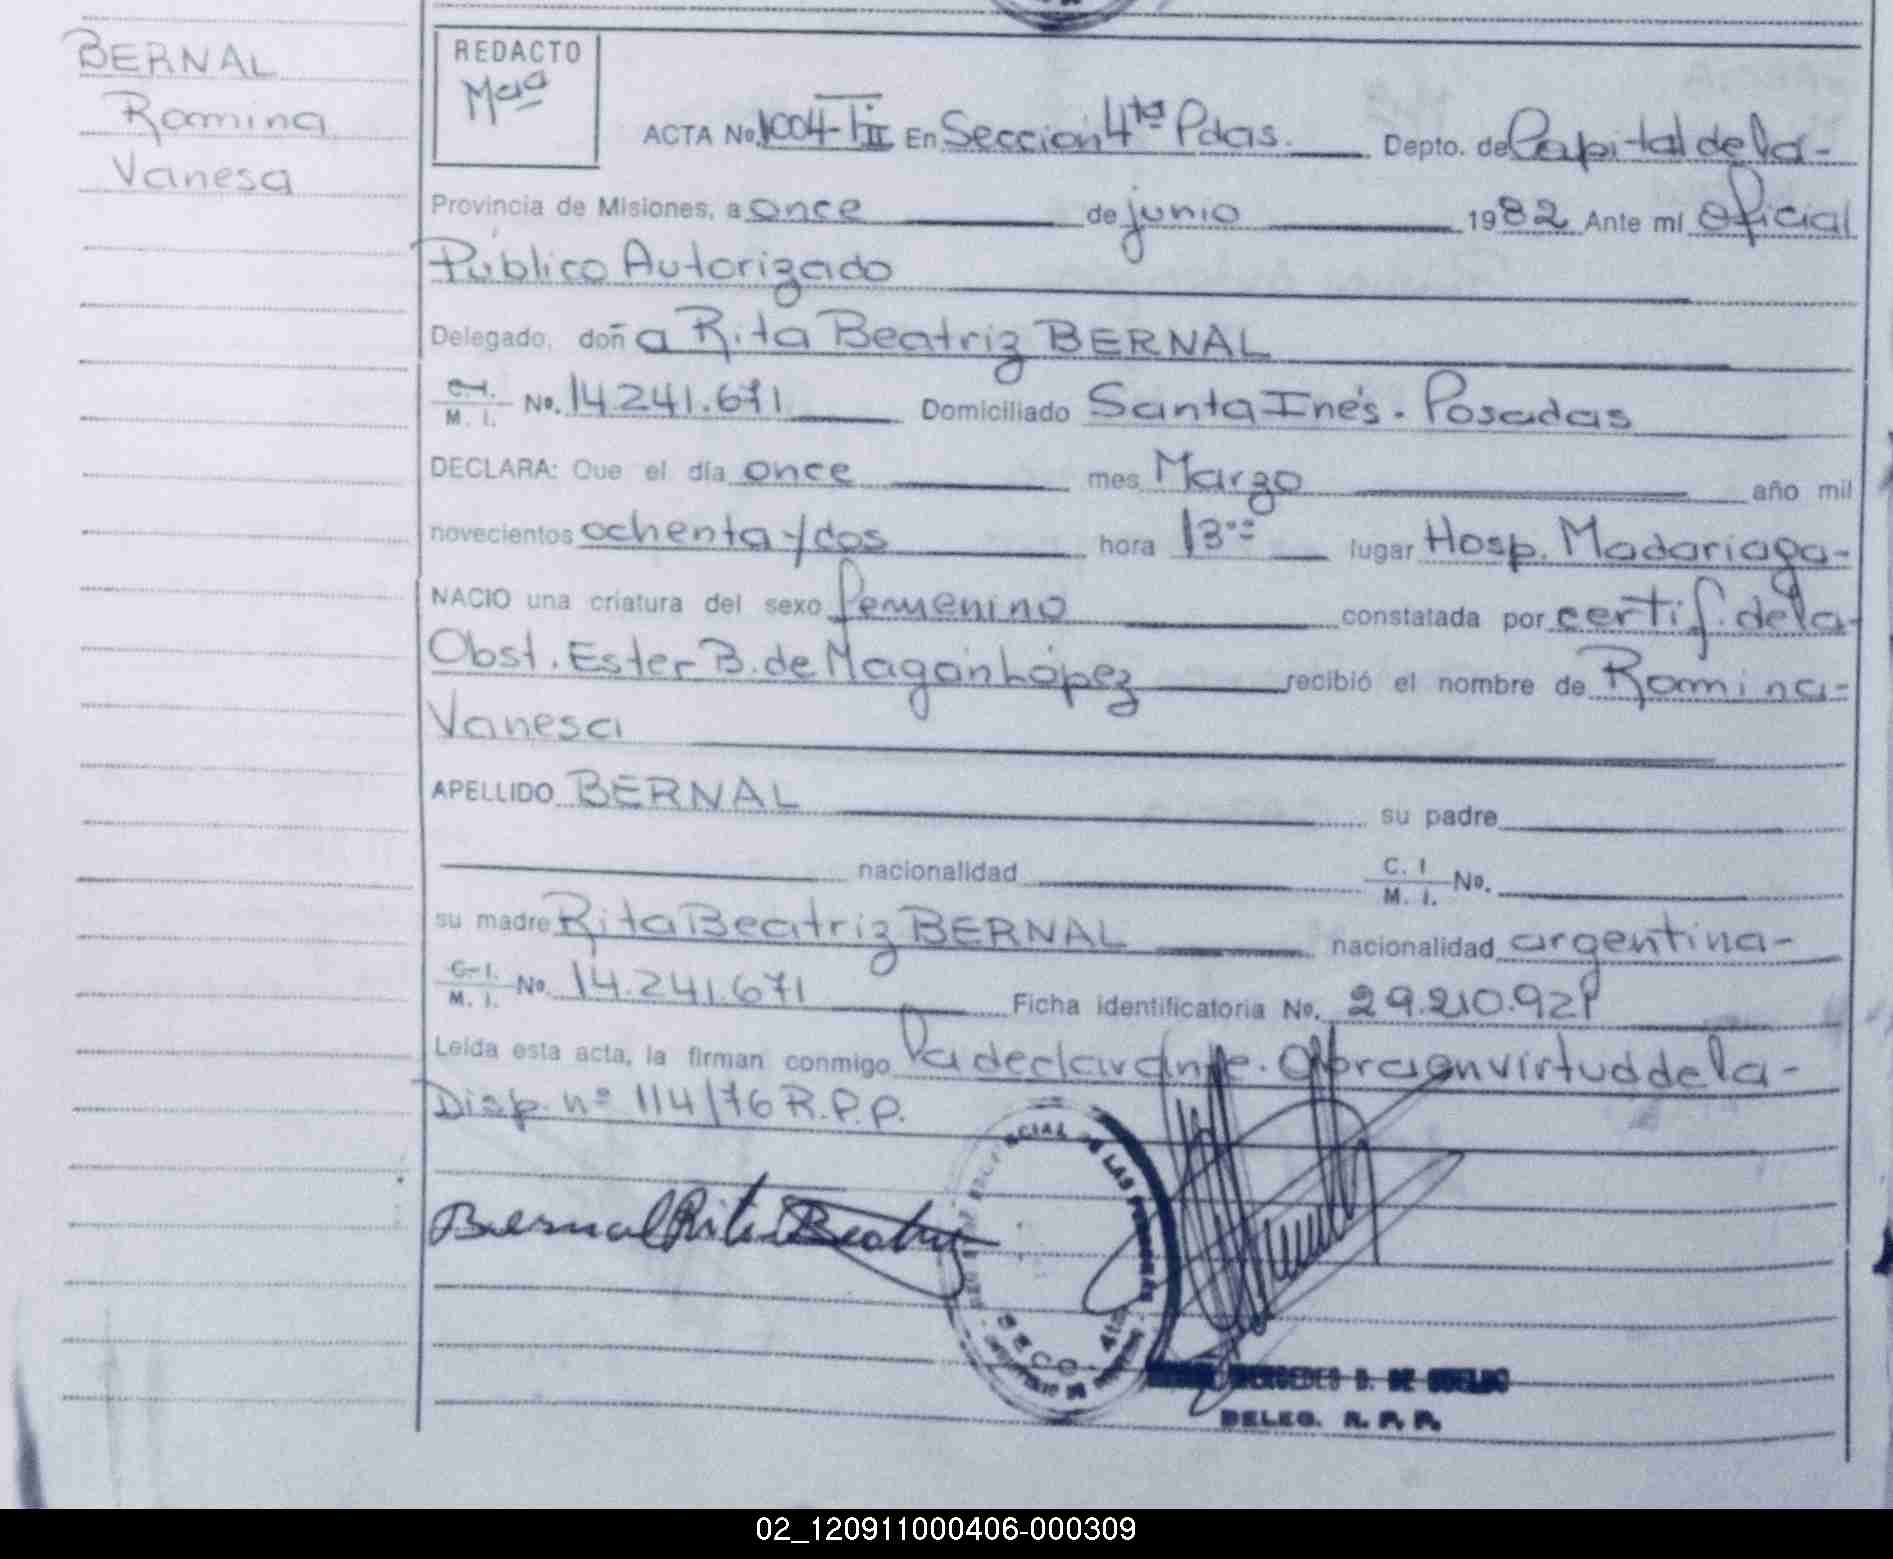 BERNAL
Romina
Vanesa
REDACTO
ACTA No. 1004-TºII En Seccion 4ta Pdas. Depto. de Capital de la-
Provincia de Misiones, a once de junio 1982 Ante mí Oficial
Público Autorizado
Delegado, doña Rita Beatriz BERNAL
C. I. M. I. No. 14.241.671 Domiciliado Santa Inés. Posadas
DECLARA: Que el día once mes Marzo año mil
novecientos ochenta y dos hora 13ºº lugar Hosp. Madariaga-
NACIO una criatura del sexo femenino constatada por certif. de la-
Obst. Ester B. de Magán López recibió el nombre de Romina-
Vanesa
APELLIDO BERNAL su padre
nacionalidad C. I M. I. No.
su madre Rita Beatriz BERNAL nacionalidad argentina-
C. I. M. I. No. 14.241.671 Ficha identificatoria No. 29.210.92
Leída esta acta, la firman conmigo la declarante. Obra en virtud de la-
Disp. nº 114/76 R.P.P.
Bernal Rita Beatriz
CIAL DE LAS PERSONAS
SECC. 4ta
MERCEDES D. DE
DELEG. R. P. P.
02_120911000406-000309